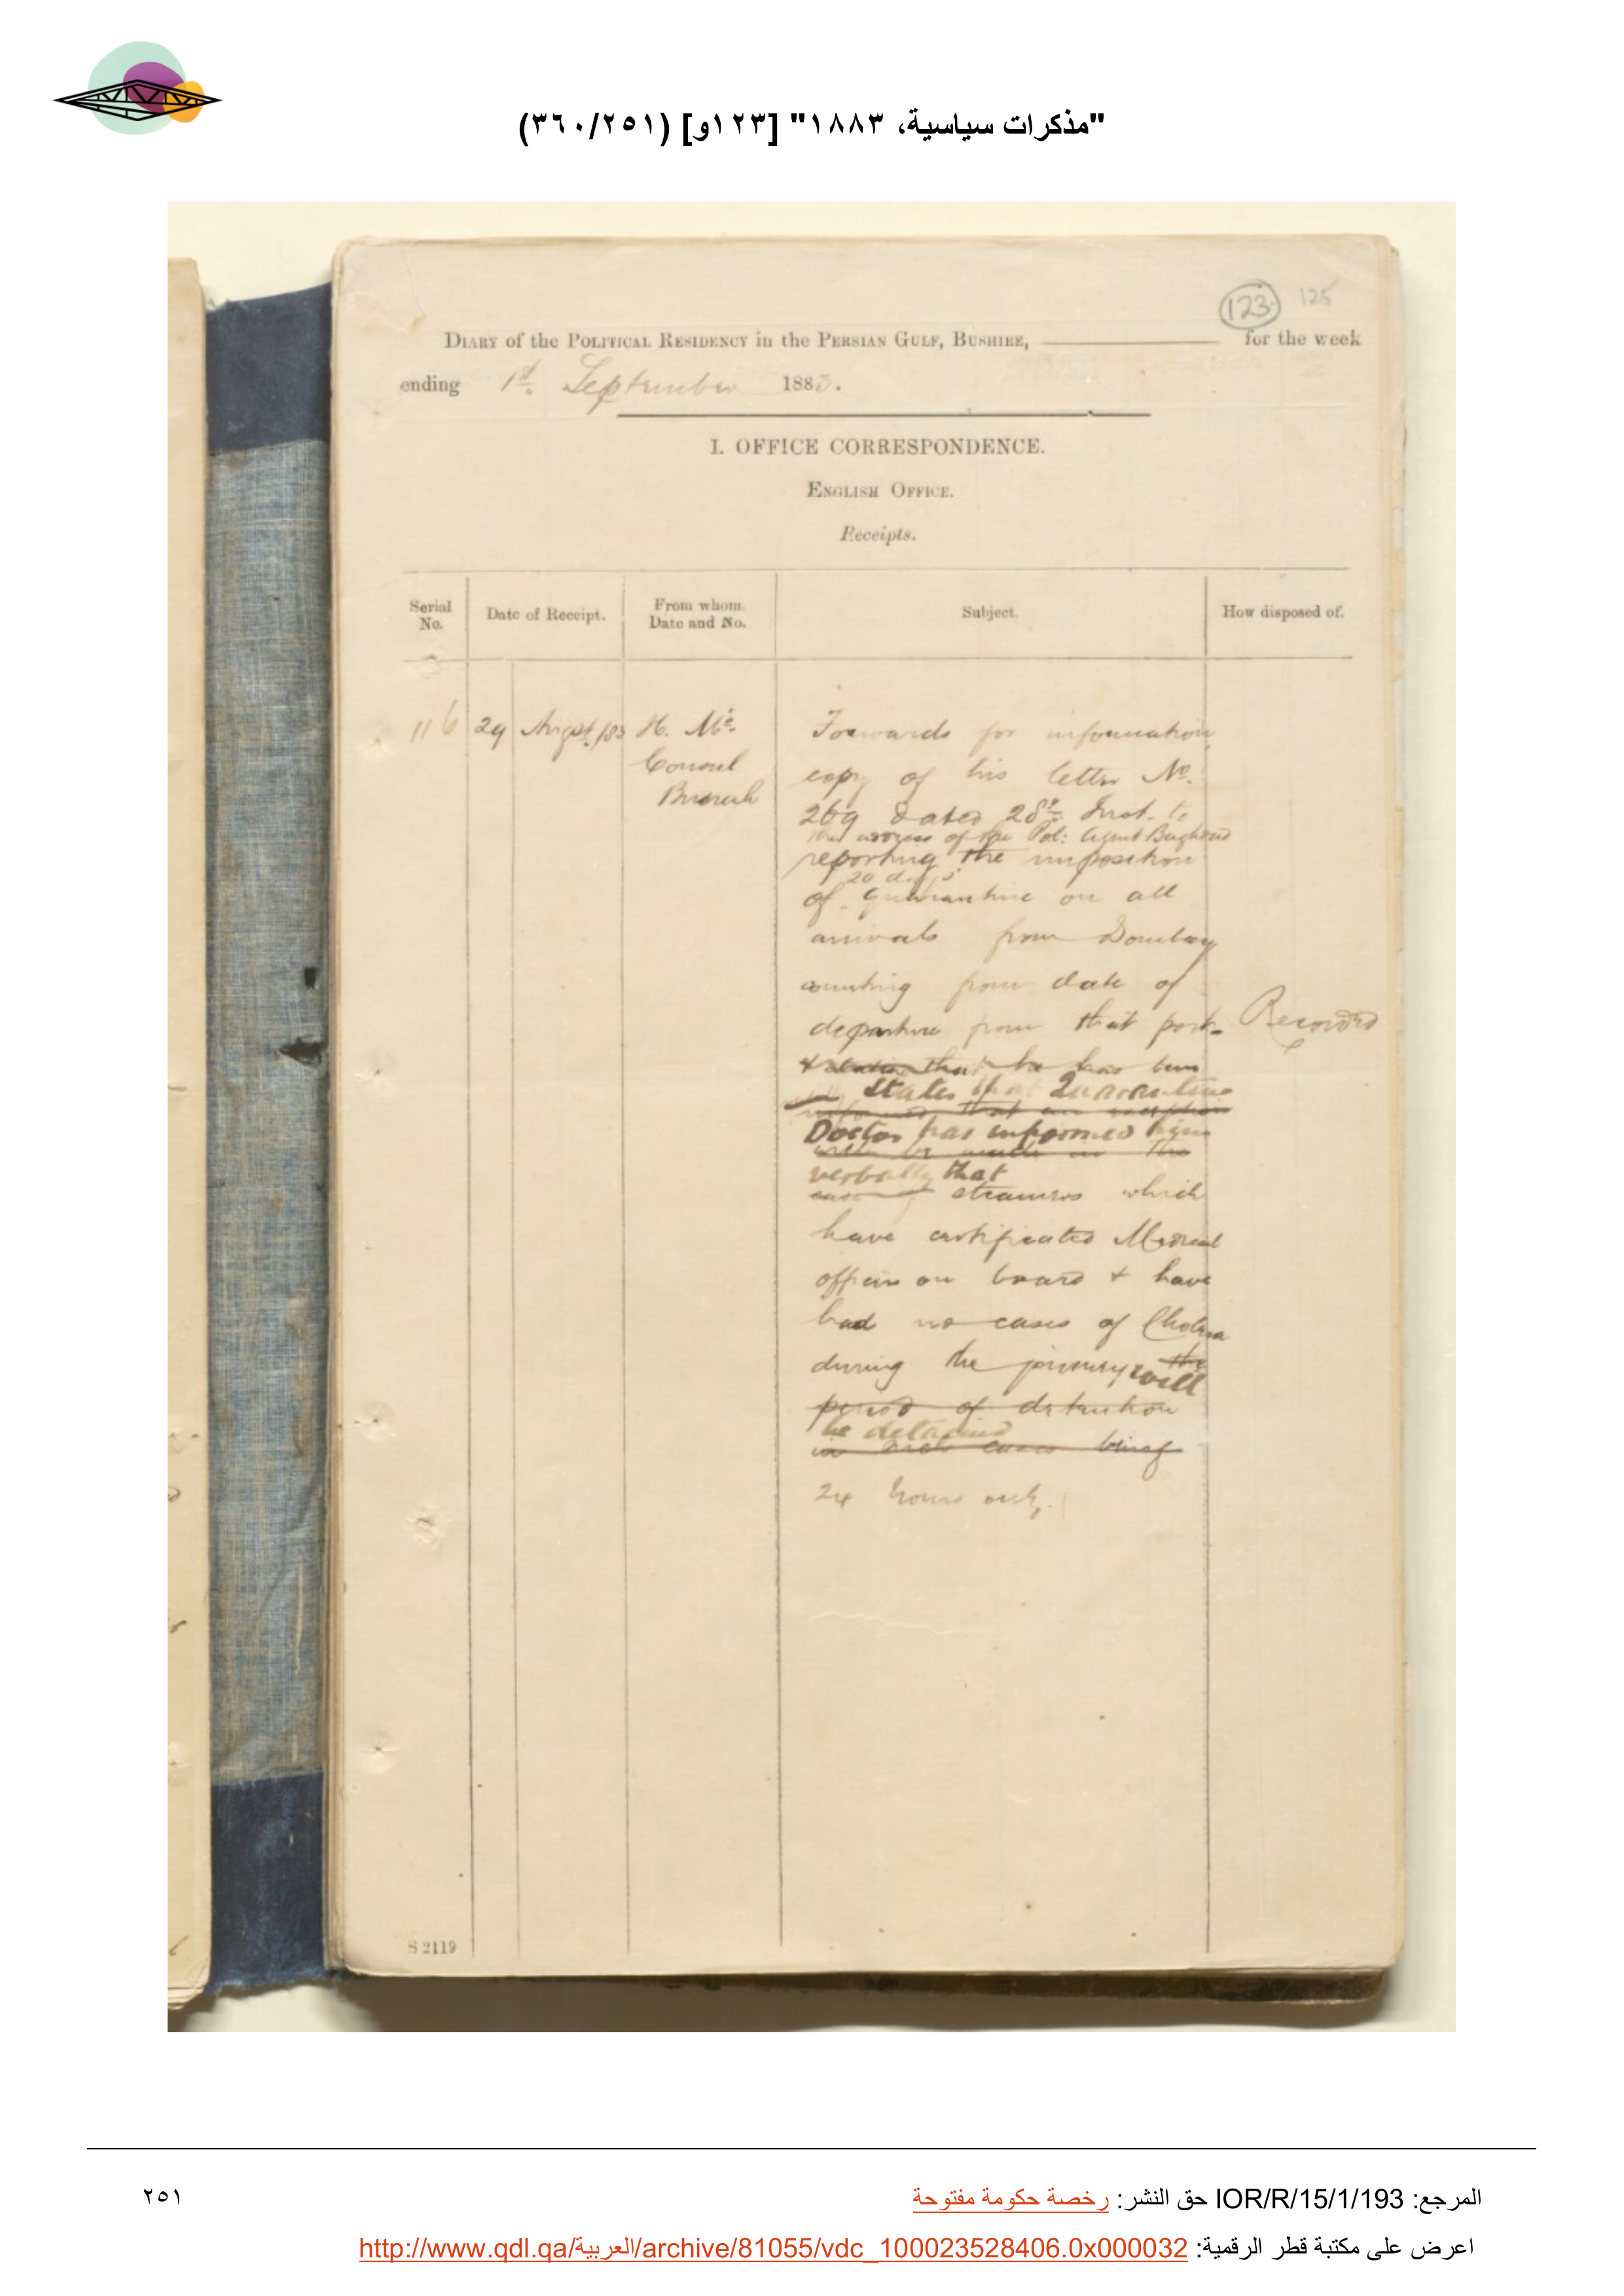 "مذكرات سياسية، ١٨٨٣" [١٢٣و] (٣٦٠/٢٥١)
123 125
DIARY of the POLITICAL RESIDENCY in the PERSIAN GULF, BUSHIRE, for the week
ending 1st. September 1883.
I. OFFICE CORRESPONDENCE.
ENGLISH OFFICE.
Receipts.
Serial No. Date of Receipt. From whom. Date and No. Subject. How disposed of.
116 29 August /83 H. M's Consul Busrah
Forwards for information
copy of his letter No.
269 dated 28th Inst. to
the address of the Pol: Agent Baghdad
reporting the imposition
20 days'
of quarantine on all
arrivals from Bombay
counting from date of
departure from that port Recorded
& that he has been
States that Quarantine
informed that an exception
Doctor has informed him
will be made in the
verbally that
case of steamers which
have certificated Medical
officers on board & have
had no cases of Cholera
during the journey the
will
period of detention
be detained
in such cases being
24 hours only.
S 2119
المرجع: IOR/R/15/1/193 حق النشر: رخصة حكومة مفتوحة
٢٥١
اعرض على مكتبة قطر الرقمية: http://www.qdl.qa/العربية/archive/81055/vdc_100023528406.0x000032